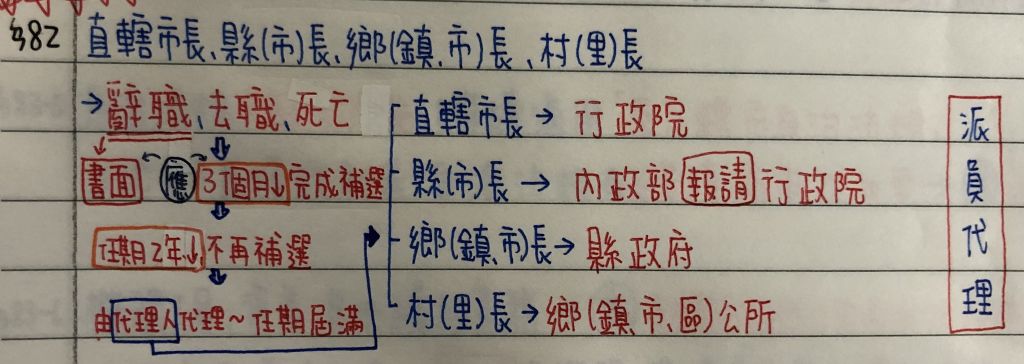 §82 直轄市長、縣(市)長、鄉(鎮、市)長、村(里)長
→辭職、去職、死亡
書面 應 3個月↓完成補選
任期2年↓不再補選
由代理人代理~任期屆滿
直轄市長→行政院
縣(市)長→內政部報請行政院
鄉(鎮、市)長→縣政府
村(里)長→鄉(鎮、市、區)公所
派員代理